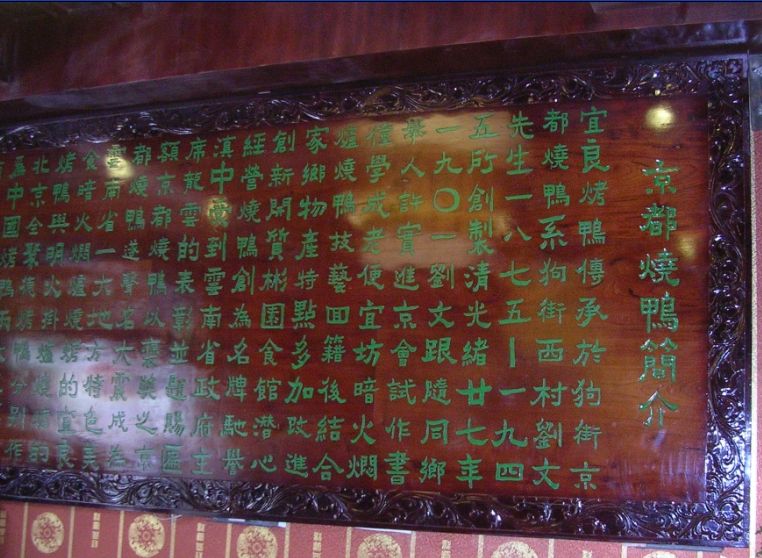 京都燒鴨簡介
宜良烤鴨傳承於狗街京
都燒鴨系狗街西村劉文
先生一八七五—一九四
五所創製清光緒廿七年
一九〇一劉文跟隨同鄉
舉人許實進京會試作書
僮學成老便宜坊暗火燜
爐燒鴨技藝回籍後結合
家鄉物產特點多加改進
創新開質彬園食館潛心
經營燒鴨創為名牌馳譽
滇中到雲南省政府主
席龍雲的表彰並題賜匾
額京都燒鴨以褒美之京
都燒鴨遂聲名大震成為
雲南省一大地方特色美
食暗火燜爐燒烤的宜良
烤鴨與明火掛爐燒的
北京全聚德鴨分別作
中國烤鴨兩